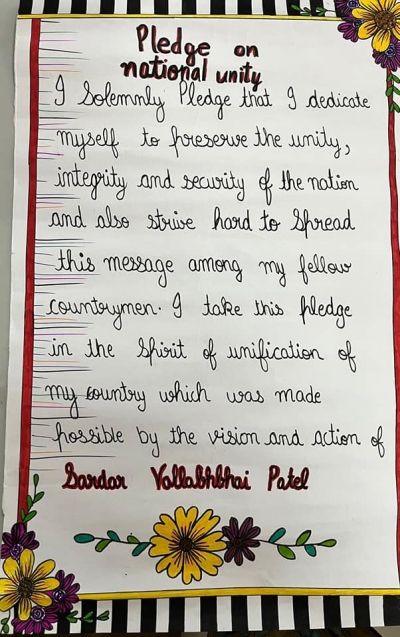 Pledge on
national unity
I Solemnly Pledge that I dedicate
myself to preserve the unity,
integrity and security of the nation
and also strive hard to Spread
this message among my fellow
countrymen. I take this pledge
in the Spirit of unification of
my country which was made
possible by the vision and action of
Sardar Vallabhbhai Patel